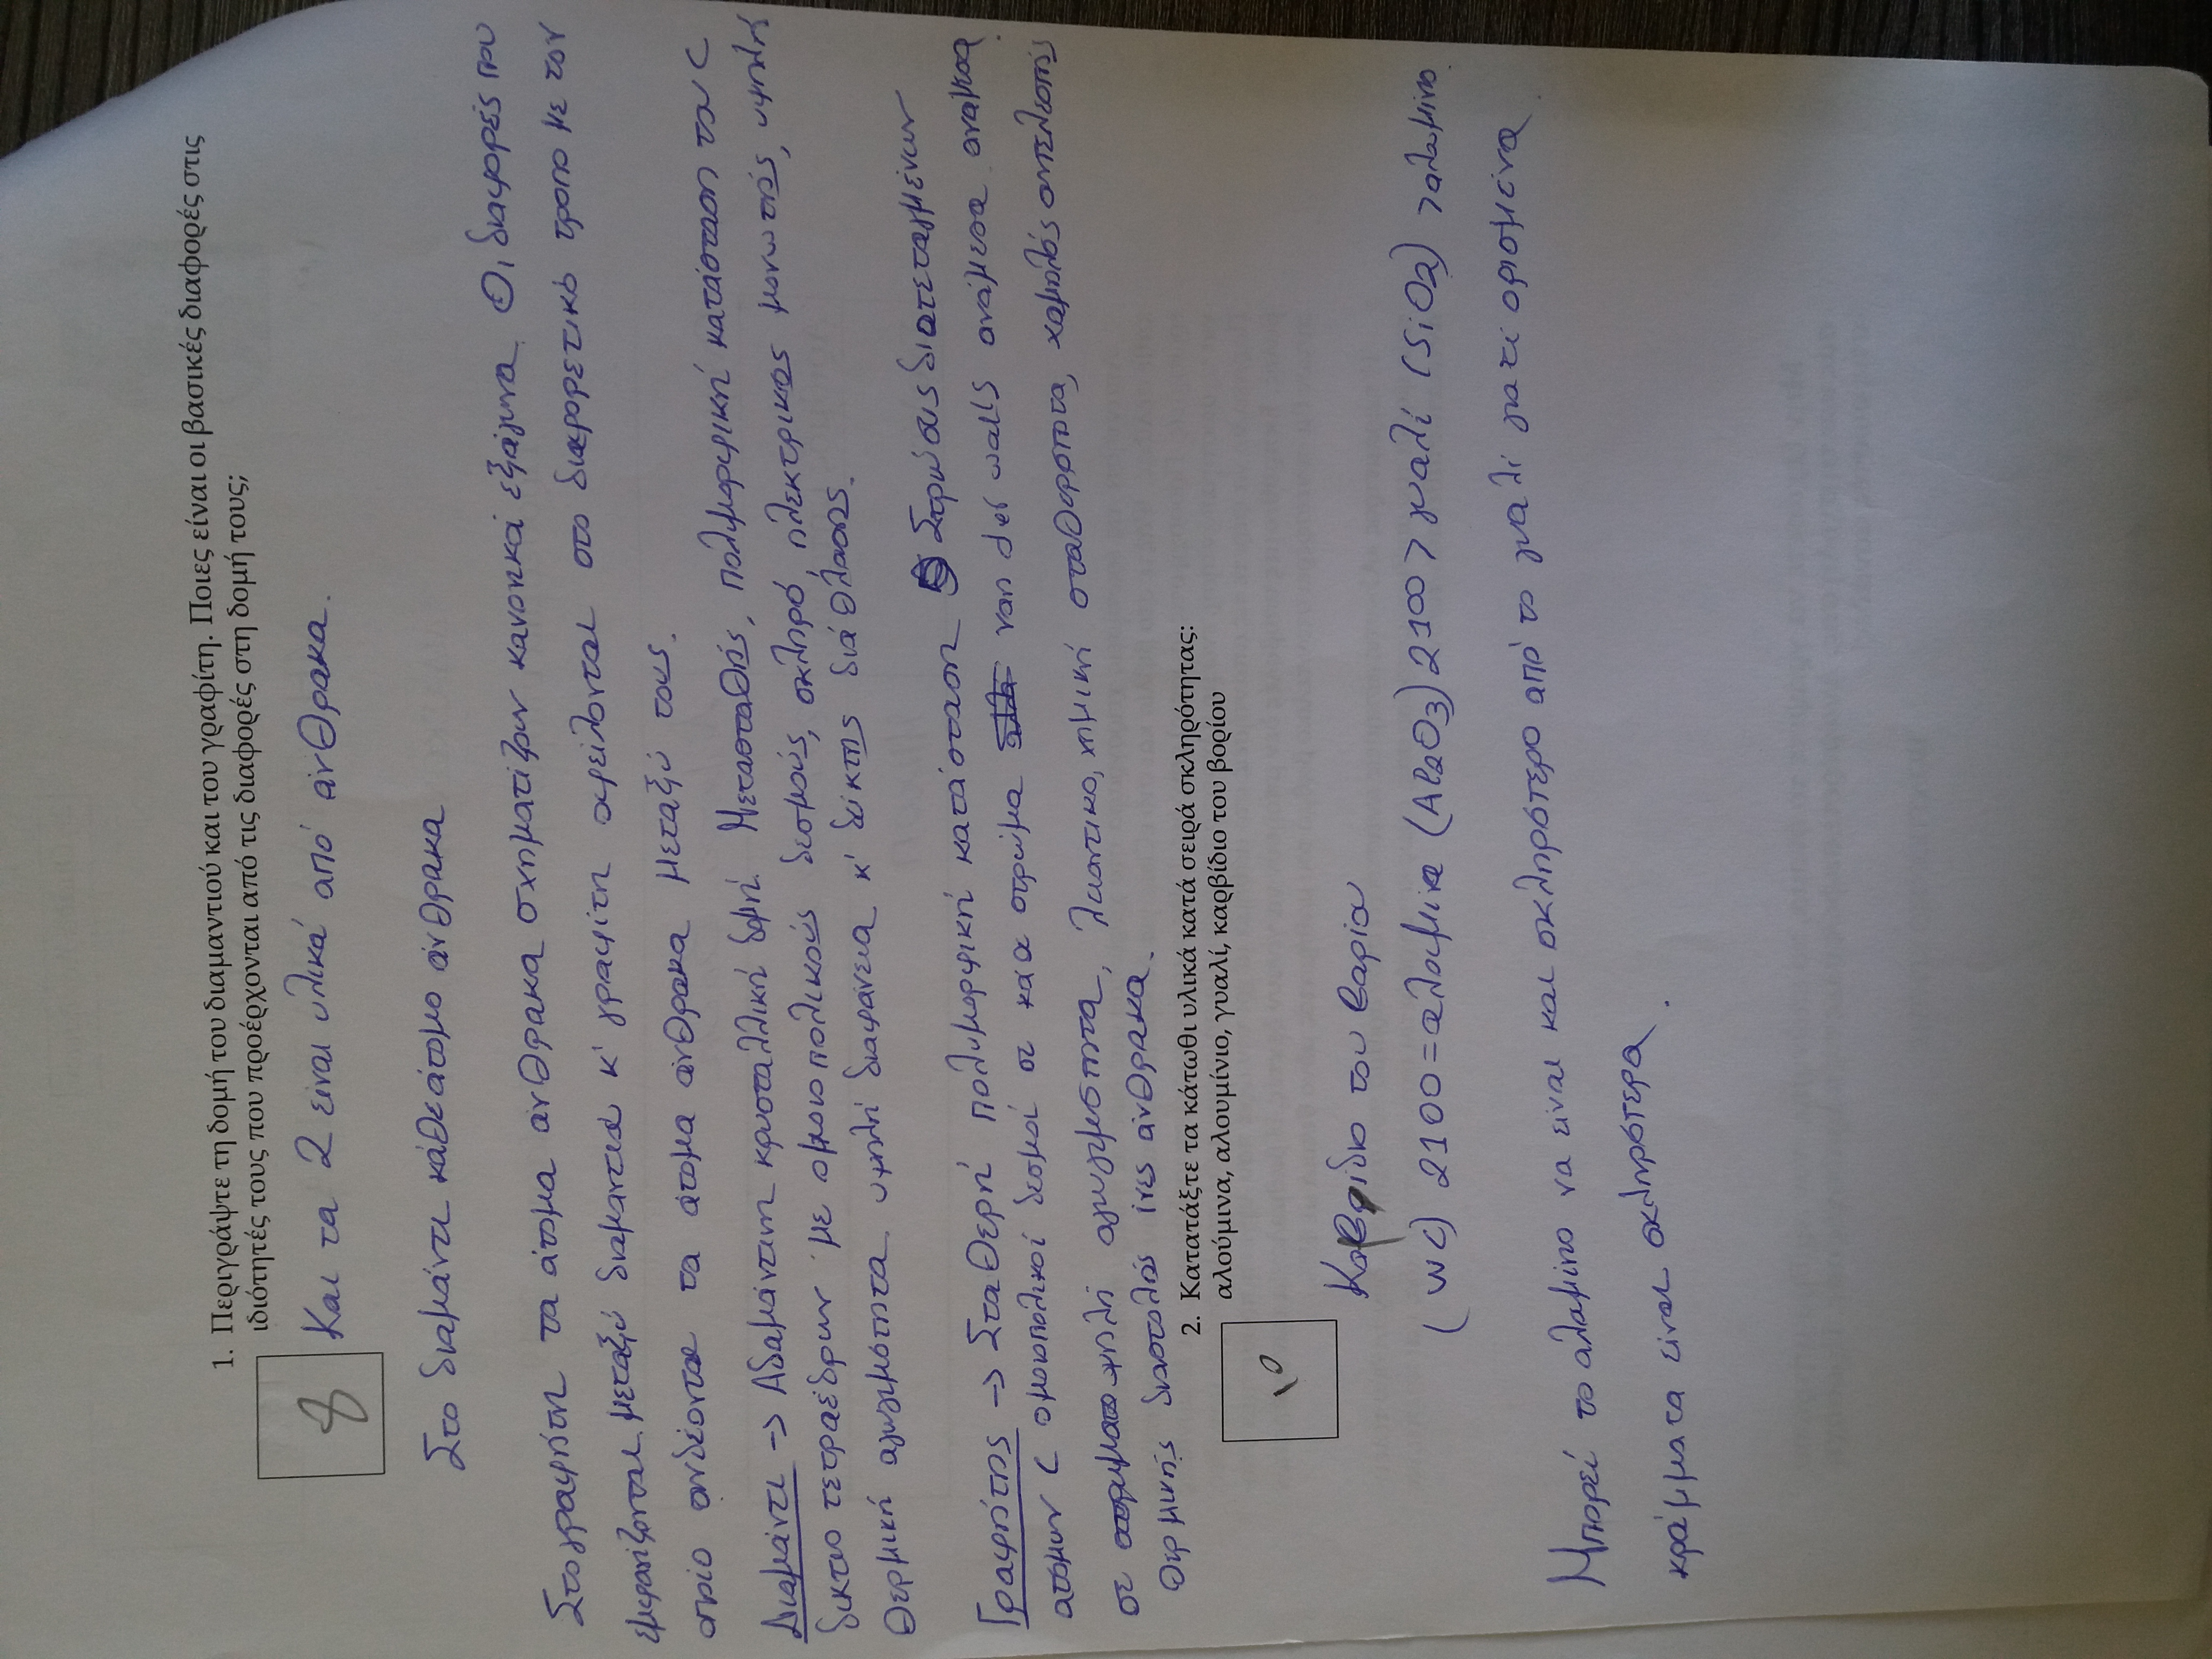 1. Περιγράψτε τη δομή του διαμαντιού και του γραφίτη. Ποιες είναι οι βασικές διαφορές στις
ιδιότητές τους που προέρχονται από τις διαφορές στη δομή τους;
8
Και τα 2 είναι υλικά από άνθρακα.
Στο διαμάντι κάθε άτομο άνθρακα
Στο γραφήτη τα άτομα άνθρακα σχηματίζουν κανονικά εξάγωνα. Οι διαφορές που
εμφανίζονται μεταξύ διαμαντιού κ' γραφίτη οφείλονται στο διαφορετικό τροπο με τον
οποίο συνδέονται τα άτομα άνθρακα μεταξύ τους.
Διαμάντι -> Αδαμάντινη κρυσταλλική δομή. Μετασταθής, πολυμορφική κατάσταση του C
δικτυο τετραέδρων με ομοιοπολικούς δεσμούς, σκληρό, ηλεκτρικος μονωτής, υψηλής
θερμική αγωγιμότητα υψηλή διαφάνεια κ' δείκτης διάθλασης.
Γραφήτης -> Σταθερή πολυμορφική κατάσταση Στρώσεις διατεταγμένων
ατόμων C ομοιοπολικοί δεσμοί σε κάθε στρώμα van der walls ανάμεσα
σε υψηλή αγωγιμότητα, λιπαντικο, χημική σταθερότητα, χαμηλός συντελεστής
θερμικής διαστολής ίνες άνθρακα.
2. Κατατάξτε τα κάτωθι υλικά κατά σειρά σκληρότητας:
αλούμινα, αλουμίνιο, γυαλί, καρβίδιο του βορίου
10
Καρβίδιο του βορίου
(WC) 2100 = αλουμινα (Al2O3) 2100 > γυαλί (SiO2) > αλουμινιο.
Μπορεί το αλουμίνιο να είναι και σκληρότερο από το γυαλί γιατί ορισμένα
κράμματα είναι σκληρότερα.